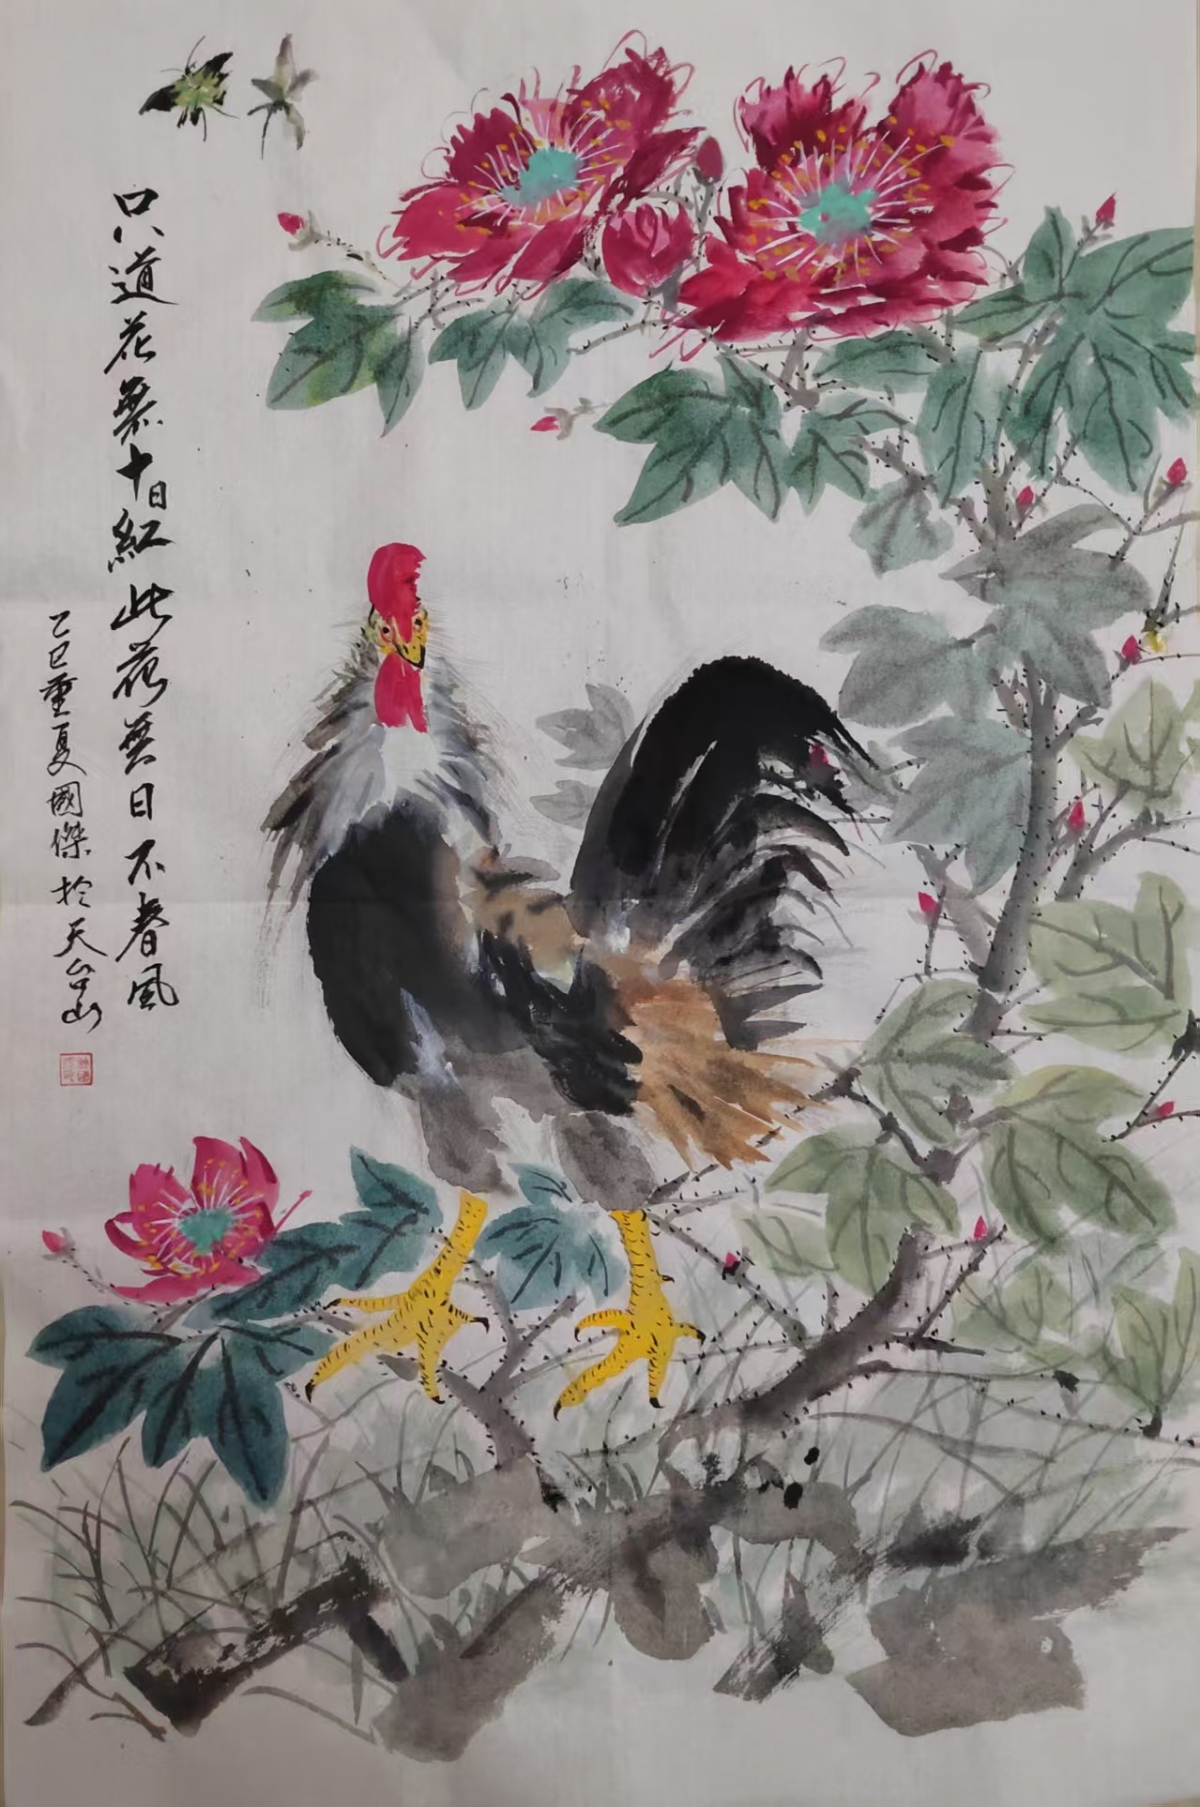 只道花無十日紅此花無日不春風
乙巳重夏國傑於天台山